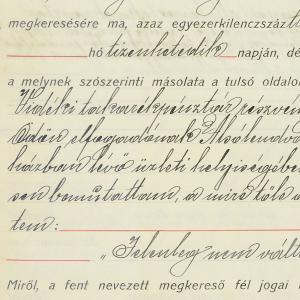 megkeresésére ma, azaz egyezerkilenczszáz
hó tizenhetedik napján, dé
a melynek szószerinti másolata a tulsó oldalo
Vidéki takarékpénztár részvén
elfogadónak Alsólendva
házban lévő üzleti helyiségébe
sen bemutattam, a mire tőle a
tem:
"Jelenleg nem vált
Miről, a fent nevezett megkereső fél jogai